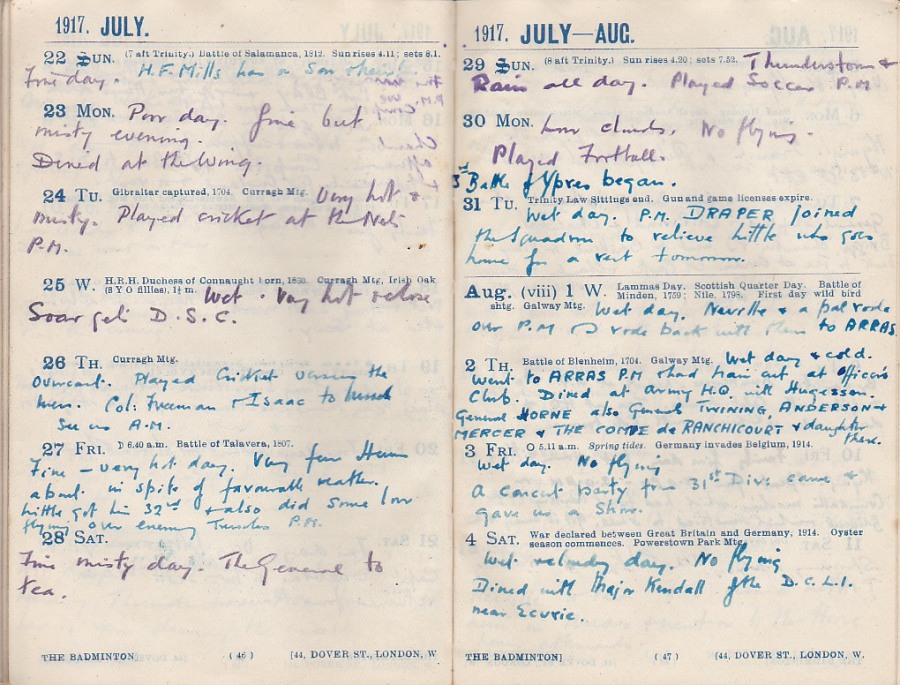 1917. JULY.
22 SUN. (7 aft Trinity.) Battle of Salamanca, 1812. Sun rises 4.11; sets 8.1.
Fine day. H.F. Mills has a Son
23 MON. Poor day. fine but
misty evening.
Dined at the Wing.
24 TU. Gibraltar captured, 1704. Curragh Mtg. Very hot &
misty. Played cricket at the Nets
P.M.
25 W. H.R.H. Duchess of Connaught born, 1860. Curragh Mtg, Irish Oak
(3 Y O fillies), 1½ m. Wet. Very hot & close
Soar gets D.S.C.
26 TH. Curragh Mtg.
Overcast. Played Cricket versus the
men. Col: Freeman & Isaac to
See us A.M.
27 FRI. D 6.40 a.m. Battle of Talavera, 1807.
Fine – very hot day. Very few Huns
about in spite of favourable weather.
Little got his 32nd & also did some low
flying over enemy Trenches P.M.
28 SAT.
Fine misty day. The General to
tea.
THE BADMINTON] (46) [44, DOVER ST., LONDON, W
1917. JULY—AUG.
29 SUN. (8 aft Trinity.) Sun rises 4.20; sets 7.52. Thunderstorm &
Rain all day. Played Soccer P.M
30 MON. Low clouds. No flying.
Played Football.
3rd Battle of Ypres began.
31 TU. Trinity Law Sittings end. Gun and game licenses expire.
Wet day. P.M. DRAPER joined
the Squadron to relieve Little who goes
home for a rest tomorrow.
Aug. (viii) 1 W. Lammas Day. Scottish Quarter Day. Battle of
Minden, 1759; Nile, 1798. First day wild bird
shtg. Galway Mtg. Wet day. Neville & a pal rode
over P.M & I rode back with them to ARRAS.
2 TH. Battle of Blenheim, 1704. Galway Mtg. Wet day & cold.
Went to ARRAS P.M & had hair cut at Officers
Club. Dined at Army H.Q. with Hugessen.
General HORNE also General TWINING, ANDERSON &
MERCER & THE COMPE de RANCHICOURT & daughter
there.
3 FRI. O 5.11 a.m. Spring tides. Germany invades Belgium, 1914.
Wet day. No flying
A concert party from 31st Div: came &
gave us a Show.
4 SAT. War declared between Great Britain and Germany, 1914. Oyster
season commences. Powerstown Park Mtg.
Wet day. No flying
Dined with Major Kendall of the D.C.L.I.
near Ecurie.
THE BADMINTON] (47) [44, DOVER ST., LONDON, W.